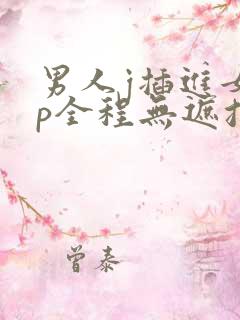 男人j插進
p全程無遮
曾泰